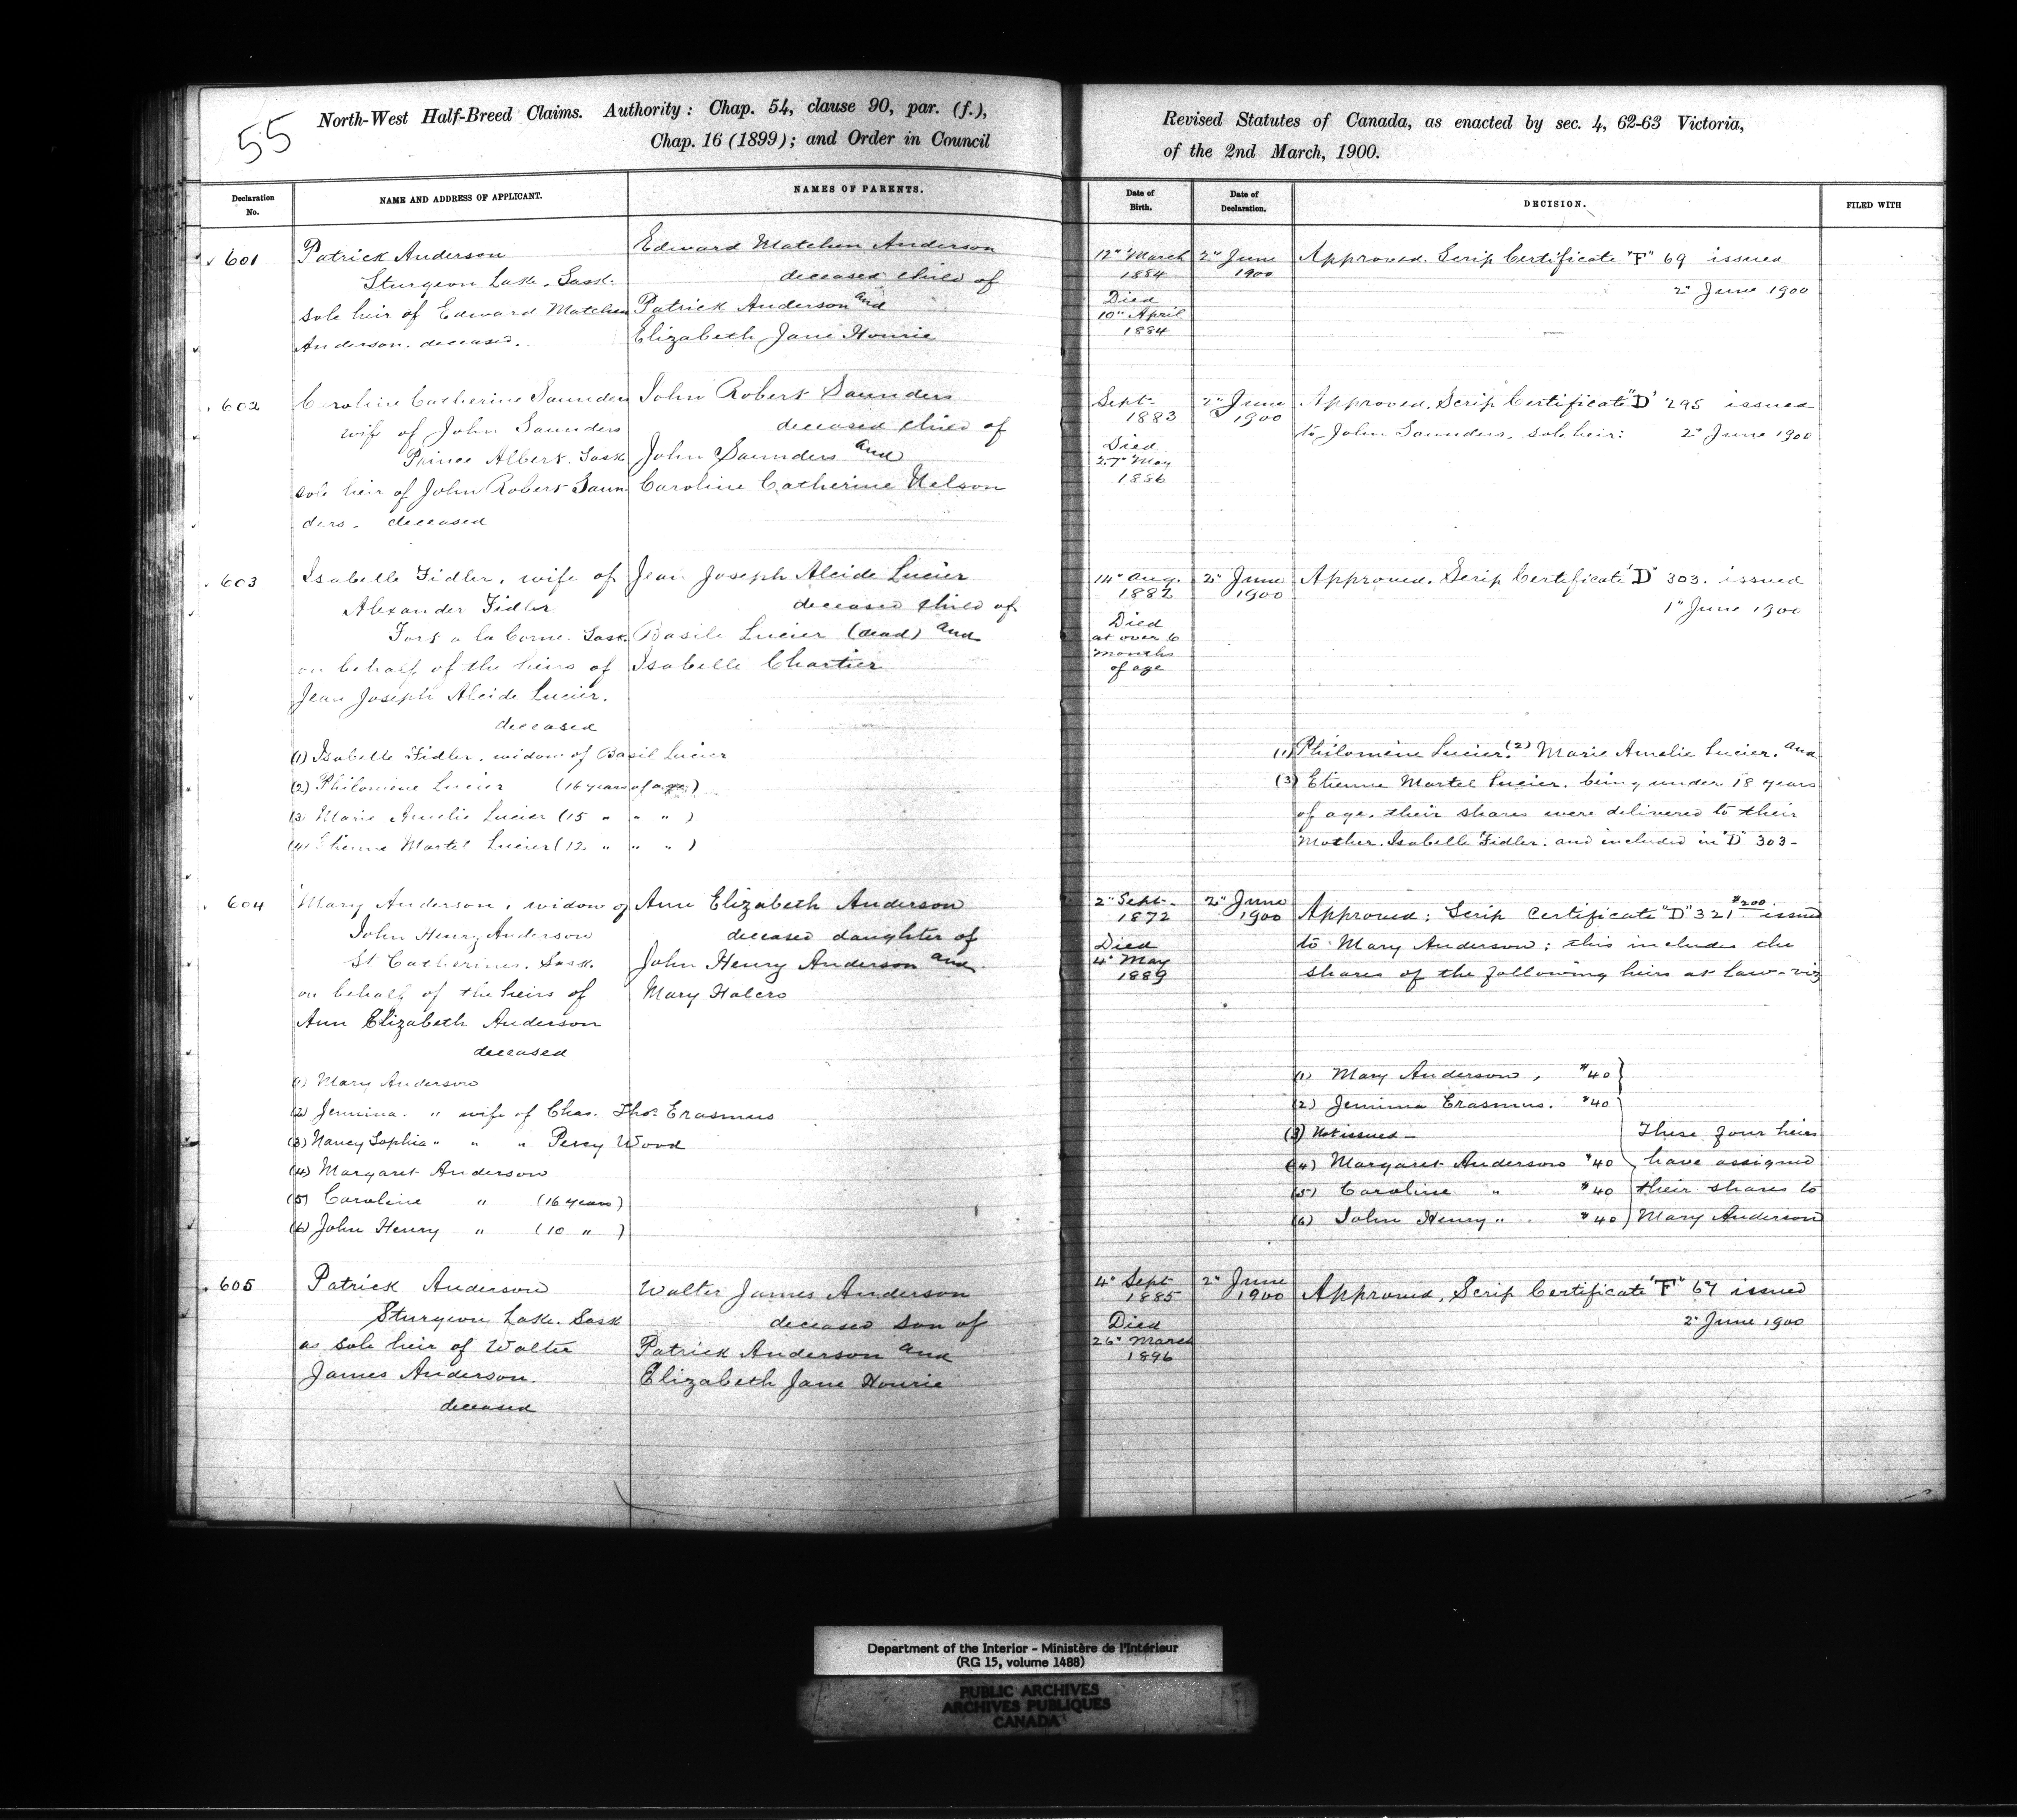 55
North-West Half-Breed Claims. Authority: Chap. 54, clause 90, par. (f.),
Chap. 16 (1899); and Order in Council
Declaration No.
NAME AND ADDRESS OF APPLICANT.
NAMES OF PARENTS.
601
Patrick Anderson
Sturgeon Lake. Sask.
sole heir of Edward Matchen
Anderson. deceased.
Edward Matchen Anderson
deceased child of
Patrick Anderson and
Elizabeth Jane Hourie
602
Caroline Catherine Saunders
wife of John Saunders
Prince Albert. Sask
sole heir of John Robert Saun-
ders - deceased
John Robert Saunders
deceased child of
John Saunders and
Caroline Catherine Nelson
603
Isabelle Fidler, wife of
Alexander Fidler
Fort a la Corne. Sask.
on behalf of the heirs of
Jean Joseph Alcide Lucier.
deceased
Jean Joseph Alcide Lucier
deceased child of
Basile Lucier (dead) and
Isabelle Chartier
(1) Isabelle Fidler, widow of Basil Lucier
(2) Philomène Lucier (16 years of age)
(3) Marie Amelie Lucier (15 " " ")
(4) Etienne Martel Lucier (12 " " ")
604
Mary Anderson, widow of
John Henry Anderson
St Catherines. Sask.
on behalf of the heirs of
Ann Elizabeth Anderson
deceased
Ann Elizabeth Anderson
deceased daughter of
John Henry Anderson and
Mary Halcro
(1) Mary Anderson
(2) Jemima. " wife of Chas. Thos. Erasmus
(3) Nancy Sophia " " " Percy Wood
(4) Margaret Anderson
(5) Caroline " (16 years)
(6) John Henry " (10 " )
605
Patrick Anderson
Sturgeon Lake. Sask
as sole heir of Walter
James Anderson.
deceased
Walter James Anderson
deceased son of
Patrick Anderson and
Elizabeth Jane Hourie
Revised Statutes of Canada, as enacted by sec. 4, 62-63 Victoria,
of the 2nd March, 1900.
Date of Birth.
Date of Declaration.
DECISION.
FILED WITH
12" March
1884
Died
10" April
1884
2" June
1900
Approved. Scrip Certificate "F" 69 issued
2" June 1900
Sept-
1883
Died
27" May
1886
2" June
1900
Approved. Scrip Certificate "D" 295 issued
to John Saunders. sole heir: 2" June 1900
14" Aug.
1882
Died
at over 6
months
of age
2" June
1900
Approved. Scrip Certificate "D" 303. issued
1" June 1900
(1) Philomène Lucier. (2) Marie Amelie Lucier. and
(3) Etienne Martel Lucier. being under 18 years
of age. their shares were delivered to their
Mother. Isabelle Fidler. and included in "D" 303-
2" Sept-
1872
Died
4" May
1889
2" June
1900
$200.
Approved; Scrip Certificate "D" 321 issued
to Mary Anderson; this includes the
shares of the following heirs at law - viz
(1) Mary Anderson, $40
(2) Jemima Erasmus. $40
(3) Not issued - These four heirs
(4) Margaret Anderson $40 have assigned
(5) Caroline " $40 their shares to
(6) John Henry " $40 Mary Anderson
4" Sept
1885
Died
26" March
1896
2" June
1900
Approved, Scrip Certificate "F" 67 issued
2" June 1900
Department of the Interior - Ministère de l'Intérieur
(RG 15, volume 1488)
PUBLIC ARCHIVES
ARCHIVES PUBLIQUES
CANADA